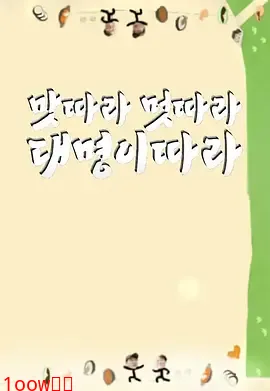 맛따라 멋따라
대명이따라
1oow